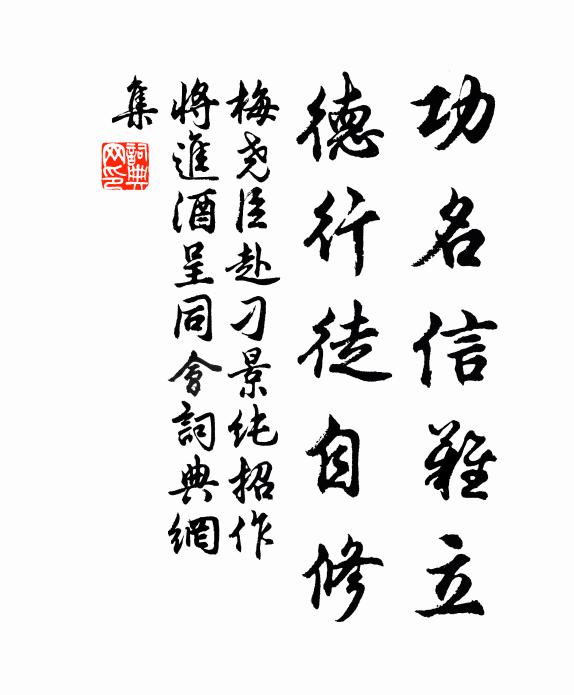 功名信難立
德行徒自修
梅堯臣赴刁景純招作
將進酒呈同會詞典網
集
詞典
网印